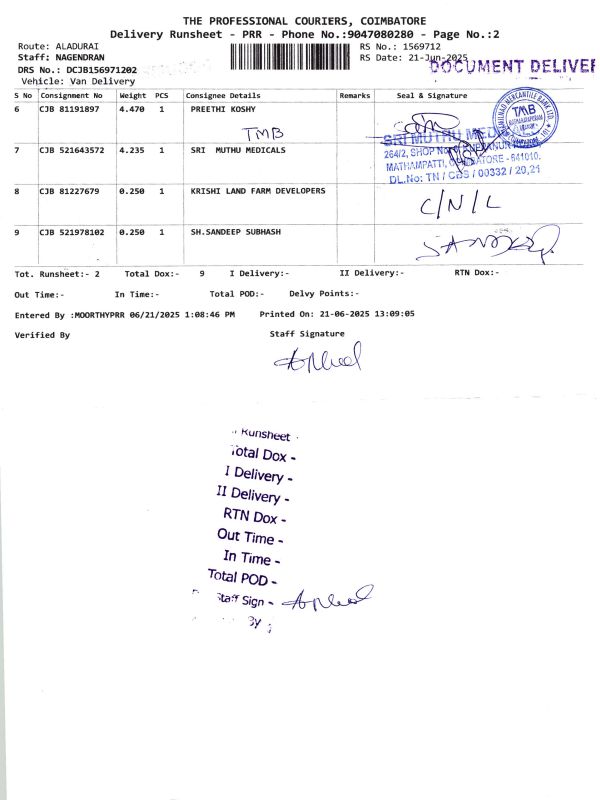 THE PROFESSIONAL COURIERS, COIMBATORE
Delivery Runsheet - PRR - Phone No.:9047080280 - Page No.:2
Route: ALADURAI
RS No.: 1569712
Staff: NAGENDRAN
RS Date: 21-Jun-2025
DOCUMENT DELIVER
DRS No.: DCJB156971202
Vehicle: Van Delivery
S No Consignment No Weight PCS Consignee Details Remarks Seal & Signature
6 CJB 81191897 4.470 1 PREETHI KOSHY
TMB
TMB
7 CJB 521643572 4.235 1 SRI MUTHU MEDICALS
SRI MUTHU
264/2, SHOP
MATHAMPATTI, COIMBATORE - 641010.
DL.No: TN / CBS / 00332 / 20,21
8 CJB 81227679 0.250 1 KRISHI LAND FARM DEVELOPERS
C/N/L
9 CJB 521978102 0.250 1 SH.SANDEEP SUBHASH
Tot. Runsheet:- 2 Total Dox:- 9 I Delivery:- II Delivery:- RTN Dox:-
Out Time:- In Time:- Total POD:- Delvy Points:-
Entered By :MOORTHYPRR 06/21/2025 1:08:46 PM Printed On: 21-06-2025 13:09:05
Verified By Staff Signature
Runsheet -
Total Dox -
I Delivery -
II Delivery -
RTN Dox -
Out Time -
In Time -
Total POD -
Staff Sign -
By